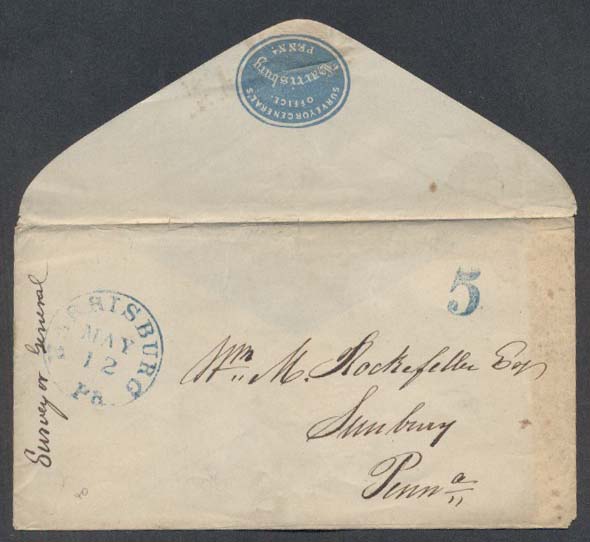 SURVEYOR GENERAL'S
OFFICE.
Harrisburg
PENNA.
HARRISBURG
MAY
12
Pa.
5
Surveyor General
Wm. M. Rockefeller Esq
Sunbury
Penna
40